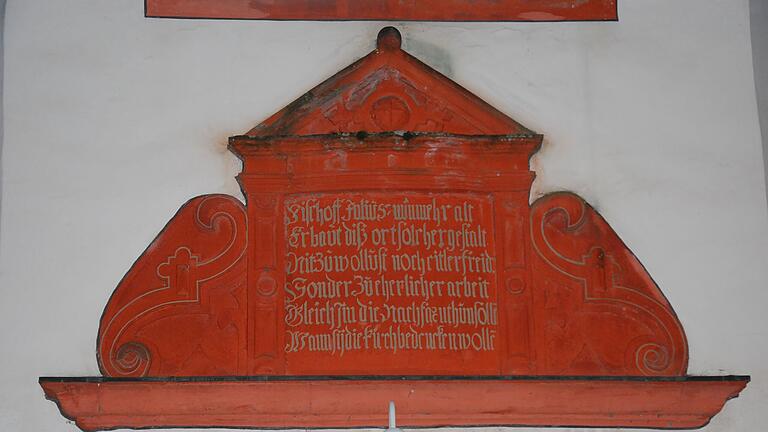 Bischoff Julius nunmehr alt
Erbaut diß ort solcher gestalt
Neit zu wollust noch eitler freid
Sonder zu ehrlicher arbeit
Gleichsin die Nachfar zuthun solle
Wann sy die Kirch bedencken wolle